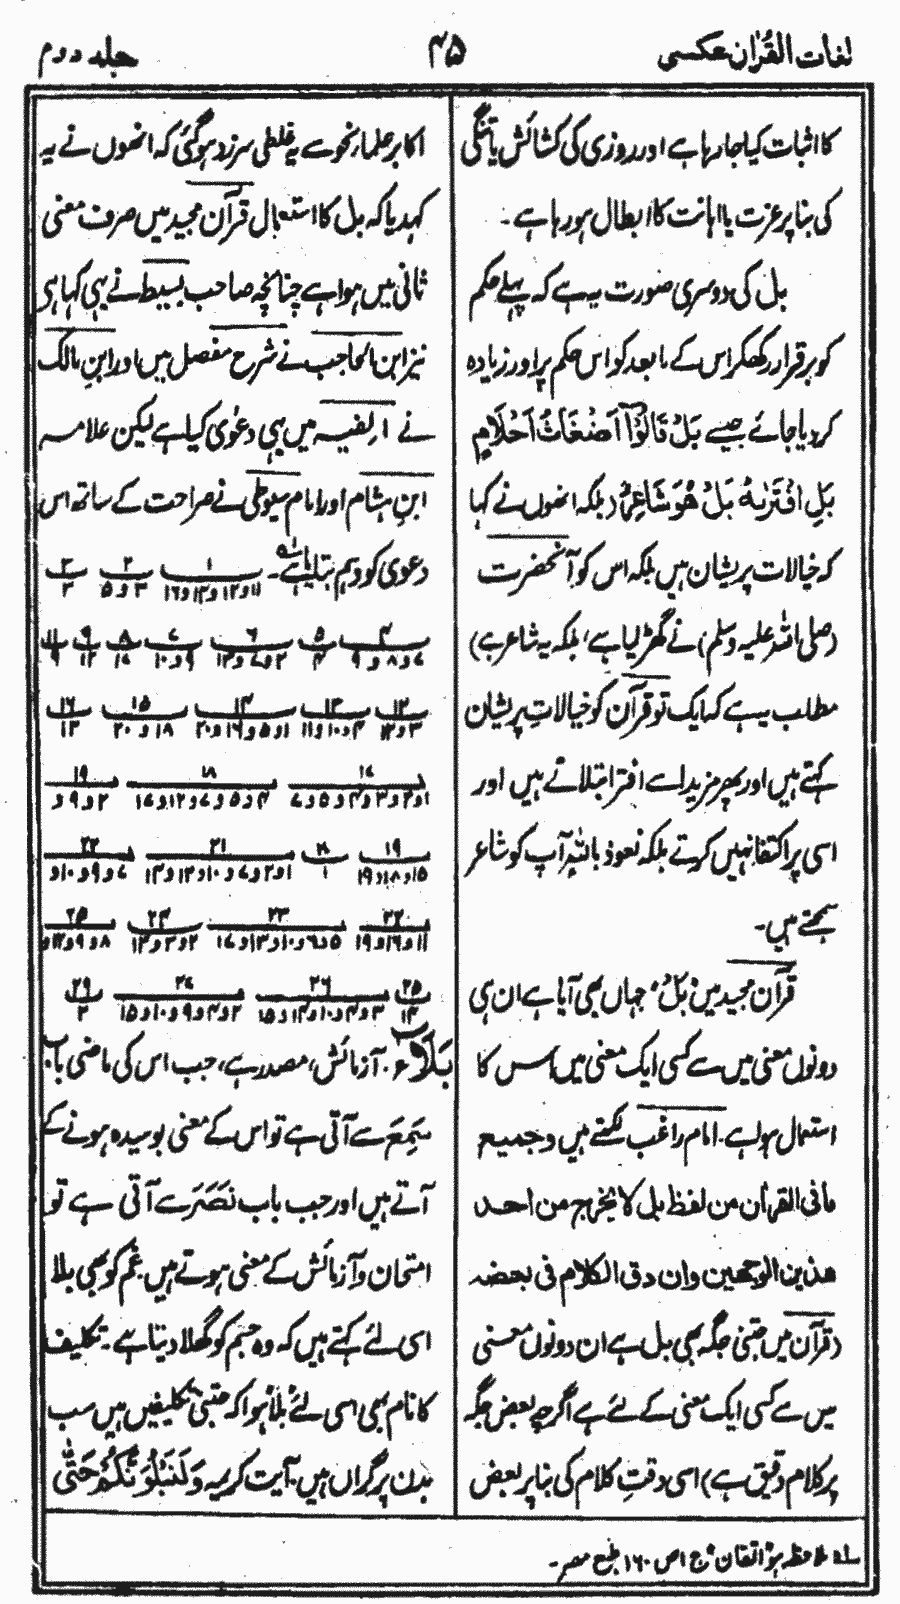 لغات القرآن عکسی
۴۵
جلد دوم
کا اثبات کیا جا رہا ہے اور روزی کی کشائش یا تنگی
کی بنا پر عزت یا اہانت کا ابطال ہو رہا ہے۔
بل کی دوسری صورت یہ ہے کہ پہلے حکم
کو برقرار رکھکر اس کے مابعد کو اس حکم پر اور زیادہ
کر دیا جائے جیسے بَلْ قَالُوْٓا اَضْغَاثُ اَحْلَامٍ
بَلِ افْتَرٰىهُ بَلْ هُوَ شَاعِرٌ (بلکہ انھوں نے کہا
کہ خیالات پریشان ہیں بلکہ اس کو آنحضرت
(صلی اللہ علیہ وسلم) نے گھڑ لیا ہے، بلکہ یہ شاعر ہے)
مطلب یہ ہے کہ ایک تو قرآن کو خیالاتِ پریشان
کہتے ہیں اور پھر مزید اسے افترا بتلاتے ہیں اور
اسی پر اکتفا نہیں کرتے بلکہ نعوذ باللہ آپ کو شاعر
سمجھتے ہیں۔
قرآن مجید میں بَلْ، جہاں بھی آیا ہے ان ہی
دونوں معنی میں سے کسی ایک معنی میں اس کا
استعمال ہوا ہے۔ امام راغب لکھتے ہیں وجمیع
مافی القرآن من لفظ بل لا یخرج من احد
ھذین الوجھین وان دق الکلام فی بعضہ
(قرآن میں جتنی جگہ بھی بل ہے ان دونوں معنی
میں سے کسی ایک معنی کے لئے ہے اگرچہ بعض جگہ
پر کلام دقیق ہے) اسی دقتِ کلام کی بنا پر بعض
اکابر علماء نحو سے یہ غلطی سرزد ہو گئی کہ انھوں نے یہ
کہدیا کہ بل کا استعمال قرآن مجید میں صرف معنی
ثانی میں ہوا ہے چنانچہ صاحب بسیط نے یہی کہا ہی
نیز ابن الحاجب نے شرح مفصل میں اور ابنِ مالک
نے الفیہ میں یہی دعوٰی کیا ہے لیکن علامہ
ابنِ ہشام اور امام سیوطی نے صراحت کے ساتھ اس
دعوٰی کو وہم بتلایا ہے۔ ۱ ۲ ۲
۱۱ و ۱۲ و ۱۴ و ۱۶ ۳ و ۵ ۳
۴ ۵ ۶ ۷ ۸ ۹ ۱۱
۷ و ۸ و ۹ ۴ ۲ و ۷ و ۱۴ ۹ و ۱۰ ۱۷ ۱۲ ۹
۱۲ ۱۳ ۱۴ ۱۵ ۱۶
۳ و ۱۴ ۴ و ۱۰ و ۱۱ ۱ و ۵ و ۱۶ و ۲۰ ۱۸ و ۲۰ ۱۳
۱۷ ۱۸ ۱۹
۱ و ۲ و ۳ و ۴ و ۵ و ۷ ۴ و ۵ و ۷ و ۱۲ و ۱۷ ۲ و ۹ و
۱۹ ۲۰ ۲۱ ۲۲
۱۵ و ۱۸ و ۱۹ ۱ ۱ و ۲ و ۷ و ۱۰ و ۱۳ و ۱۴ ۷ و ۹ و ۱۰ و
۲۲ ۲۳ ۲۴ ۲۵
۱۱ و ۱۶ و ۱۹ ۵ و ۶ و ۱۰ و ۱۳ و ۱۷ ۲ و ۳ و ۱۴ ۸ و ۹ و ۱۴ و
۲۵ ۲۶ ۲۷ ۲۹
۱۴ ۳ و ۴ و ۱۰ و ۱۴ و ۱۵ ۲ و ۴ و ۹ و ۱۰ و ۱۵ ۲
بَلَاءٌ۔ آزمائش، مصدر ہے، جب اس کی ماضی باب
سَمِعَ سے آتی ہے تو اس کے معنی بوسیدہ ہونے کے
آتے ہیں اور جب باب نَصَرَ سے آتی ہے تو
امتحان و آزمائش کے معنی ہوتے ہیں۔ غم کو بھی بلا
اسی لئے کہتے ہیں کہ وہ جسم کو گھلا دیتا ہے۔ تکلیف
کا نام بھی اسی لئے بلا ہوا کہ جتنی تکلیفیں ہیں سب
بدن پر گراں ہیں۔ آیت کریمہ وَلَنَبْلُوَنَّكُمْ حَتّٰى
لہ ملاحظہ ہو اتقان ج ۱ ص ۱۶۰ طبع مصر۔